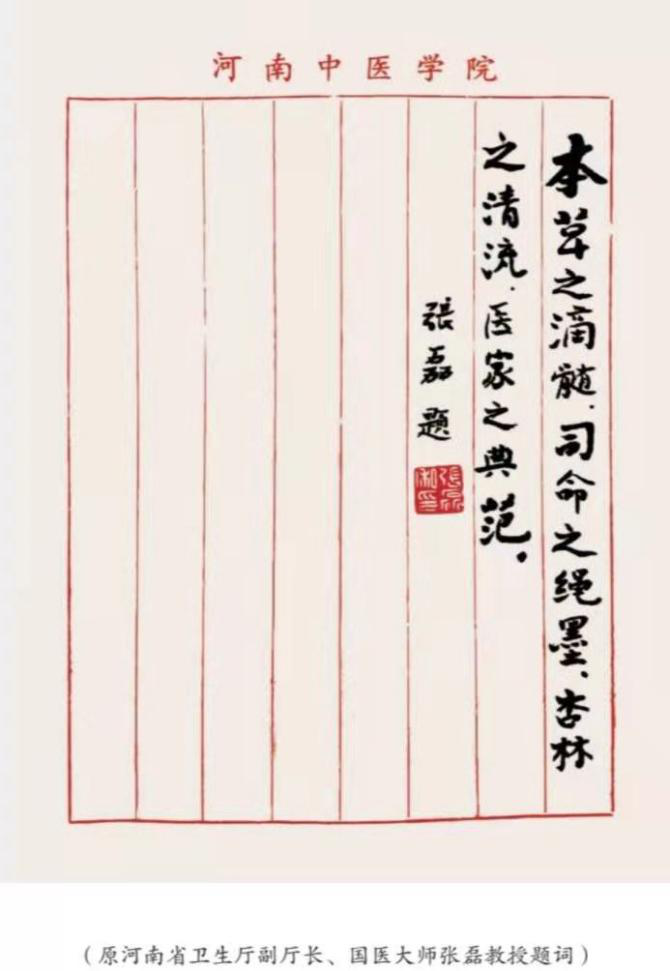 河南中医学院
本草之滴髓、司命之绳墨、杏林
之清流、医家之典范。
張磊題
張磊私印
（原河南省卫生厅副厅长、国医大师张磊教授题词）